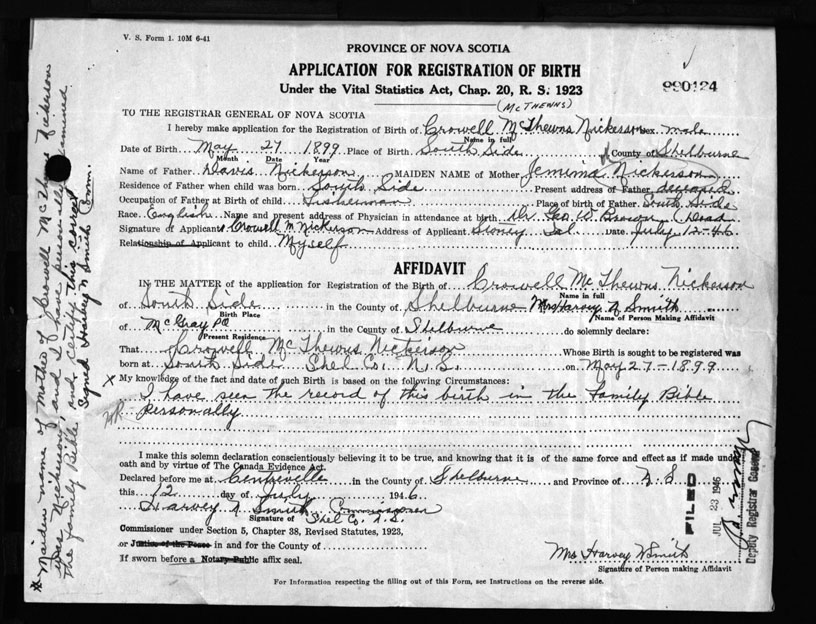 V. S. Form 1. 10M 6-41
PROVINCE OF NOVA SCOTIA
APPLICATION FOR REGISTRATION OF BIRTH
990124
Under the Vital Statistics Act, Chap. 20, R. S. 1923
(McThewns)
TO THE REGISTRAR GENERAL OF NOVA SCOTIA
I hereby make application for the Registration of Birth of Crowell McThewns Nickerson Sex male
Name in full
Date of Birth May 27 1899 Place of Birth South Side County of Shelburne
Month Date Year
Name of Father Davis Nickerson MAIDEN NAME of Mother Jemima Nickerson
Residence of Father when child was born South Side Present address of Father deceased
Occupation of Father at Birth of child Fisherman Place of birth of Father South Side
Race English Name and present address of Physician in attendance at birth Dr Geo W Brown (Dead
Signature of Applicant Crowell M. Nickerson Address of Applicant Stoney Isl. Date July 12-46
Relationship of Applicant to child Myself
AFFIDAVIT
IN THE MATTER of the application for Registration of the Birth of Crowell McThewns Nickerson
Name in full
of South Side in the County of Shelburne Mrs Harvey N Smith
Birth Place Name of Person Making Affidavit
of McGray PO in the County of Shelburne do solemnly declare:
Present Residence
That Crowell McThewns Nickerson Whose Birth is sought to be registered was
born at South Side Shel Co. N.S. on May 27-1899
X My knowledge of the fact and date of such Birth is based on the following Circumstances:
I have seen the record of this birth in the Family Bible
personally
I make this solemn declaration conscientiously believing it to be true, and knowing that it is of the same force and effect as if made under
oath and by virtue of The Canada Evidence Act.
Declared before me at Centreville in the County of Shelburne and Province of N.S
this 12 day of July 1946
Harvey N Smith Commissioner
Signature of Shel Co. N.S.
Commissioner under Section 5, Chapter 38, Revised Statutes, 1923,
or Justice of the Peace in and for the County of
If sworn before a Notary Public affix seal.
Mrs Harvey N Smith
Signature of Person making Affidavit
For Information respecting the filling out of this Form, see Instructions on the reverse side.
* Maiden name of Mother of Crowell McThewns Nickerson
was Nickerson and I have personally examined
the family Bible and certify this correct
Signed Harvey N Smith Com.
FILED
JUL 23 1946
Deputy Registrar General